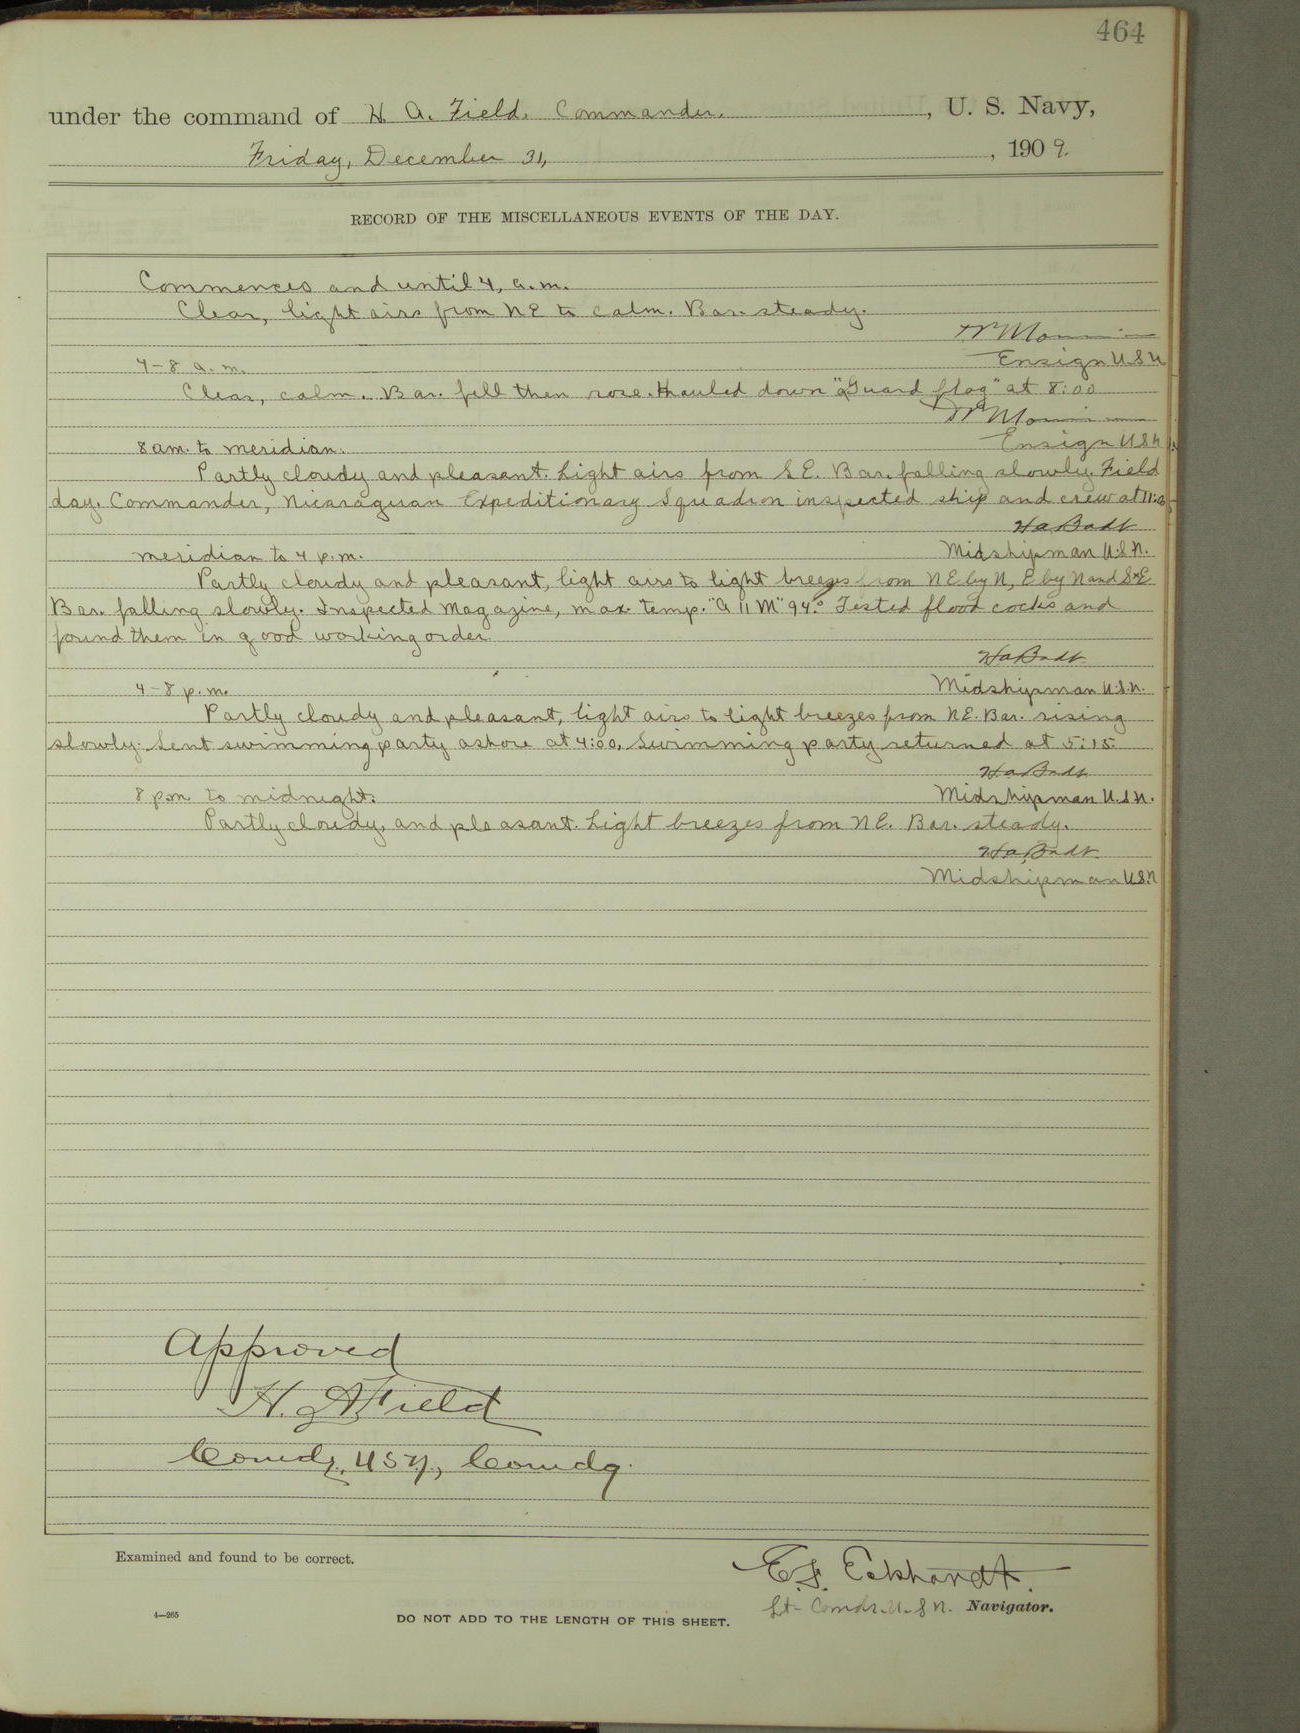 464
under the command of H. A. Field, Commander, , U. S. Navy,
Friday, December 31, , 1909.
RECORD OF THE MISCELLANEOUS EVENTS OF THE DAY.
Commences and until 4, a.m.
Clear, light airs from NE to calm. Bar. steady.
Ensign U.S.N
4-8 a.m.
Clear, calm. Bar. fell then rose. Hauled down "Guard flag" at 8:00
Ensign U.S.N
8 am. to meridian.
Partly cloudy and pleasant. Light airs from SE. Bar. falling slowly. Field
day. Commander, Nicaraguan Expeditionary Squadron inspected ship and crew at
H a Badt
Midshipman U.S.N.
Meridian to 4 p.m.
Partly cloudy and pleasant, light airs to light breezes from NE by N, E by N and
Bar. falling slowly. Inspected Magazine, max. temp. "A 11 M" 94.° Tested flood cocks and
found them in good working order.
H a Badt
Midshipman U.S.N.
4-8 p.m.
Partly cloudy and pleasant, light airs to light breezes from NE. Bar. rising
slowly. Sent swimming party ashore at 4:00, Swimming party returned at 5:15.
H a Badt
Midshipman U.S.N.
8 p.m to midnight.
Partly cloudy, and pleasant. Light breezes from NE. Bar. steady.
H a Badt
Midshipman U.S.N
Approved
H. A Field
Comdr, USN, Comdg.
Examined and found to be correct.
E. F. Eckhardt.
Lt- Comdr. U.S.N. Navigator.
4—265
DO NOT ADD TO THE LENGTH OF THIS SHEET.